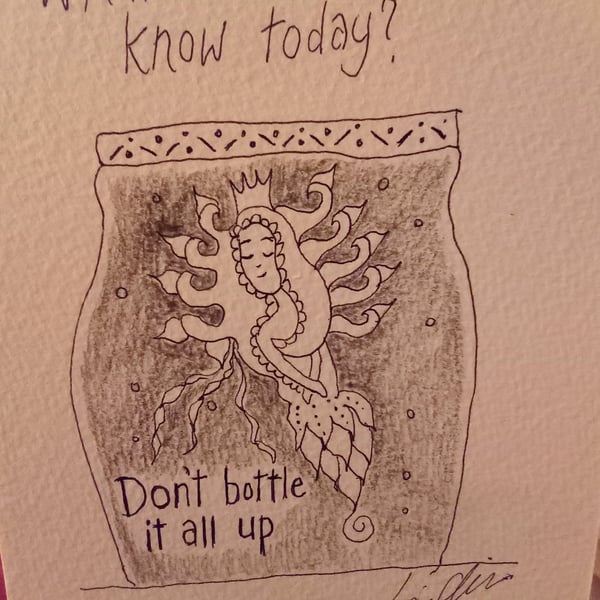 know today?
Don't bottle
it all up